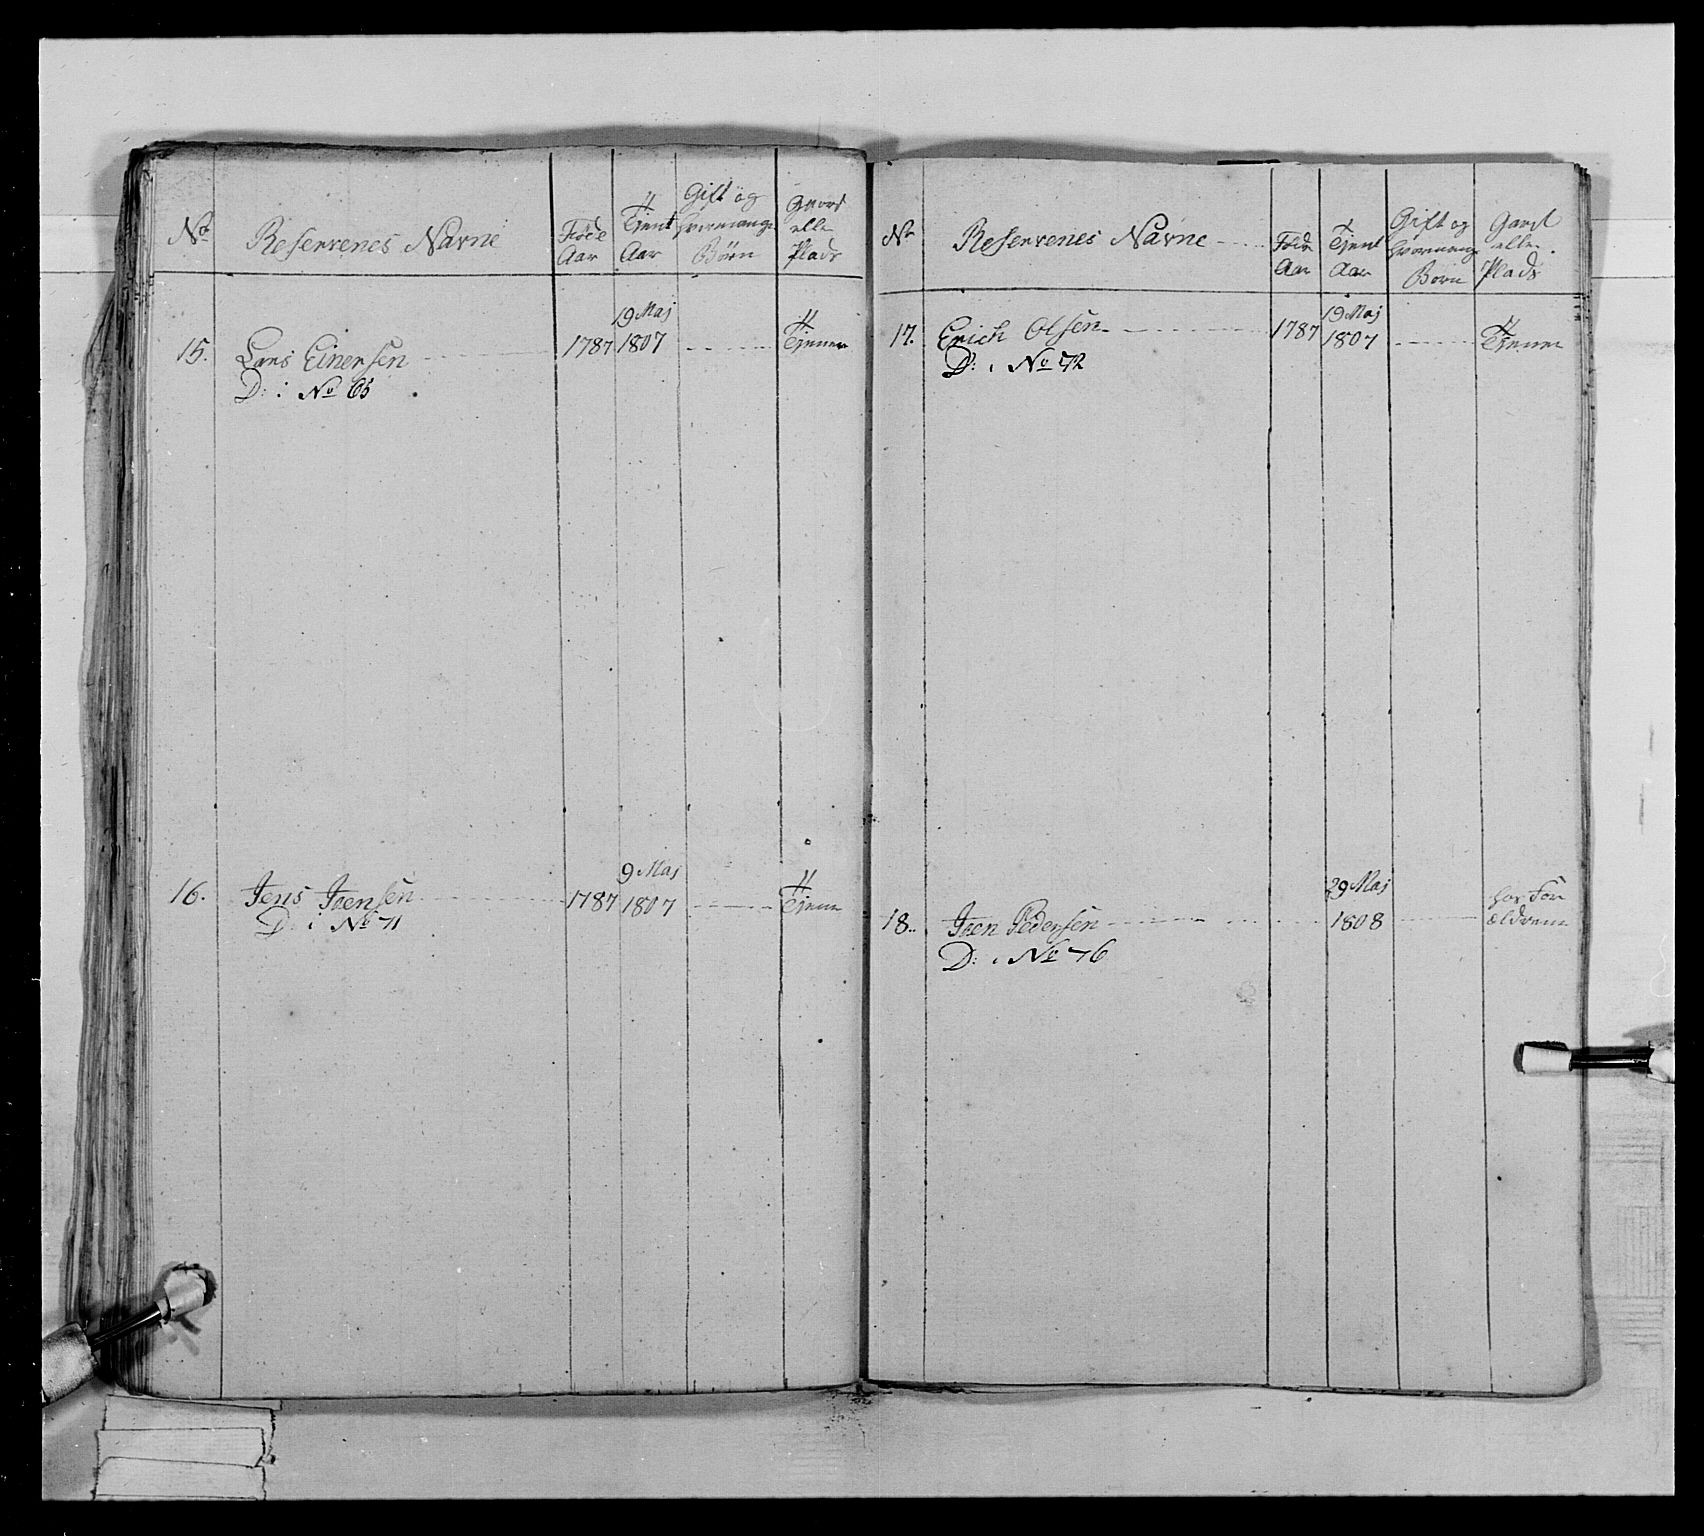 No
Reservenes Navne
Föde
Aar
Tjent
Aar
Gift og
hvormange
Börn
Gaard
elle
Plads
15.
Lars Einersen
1787
19 Maj
1807
Tjener
D: i No 65
16.
Jens Joensen
1787
9 Maj
1807
Tjener
D: i No 71
No
Reservenes Navne
Föde
Aar
Tjent
Aar
Gift og
hvormange
Börn
Gaard
elle
Plads
17.
Erich Olsen
1787
19 Maj
1807
Tjener
D: i No 72
18.
Joen Pedersen
29 Maj
1808
hos For
ældrene
D: i No 76